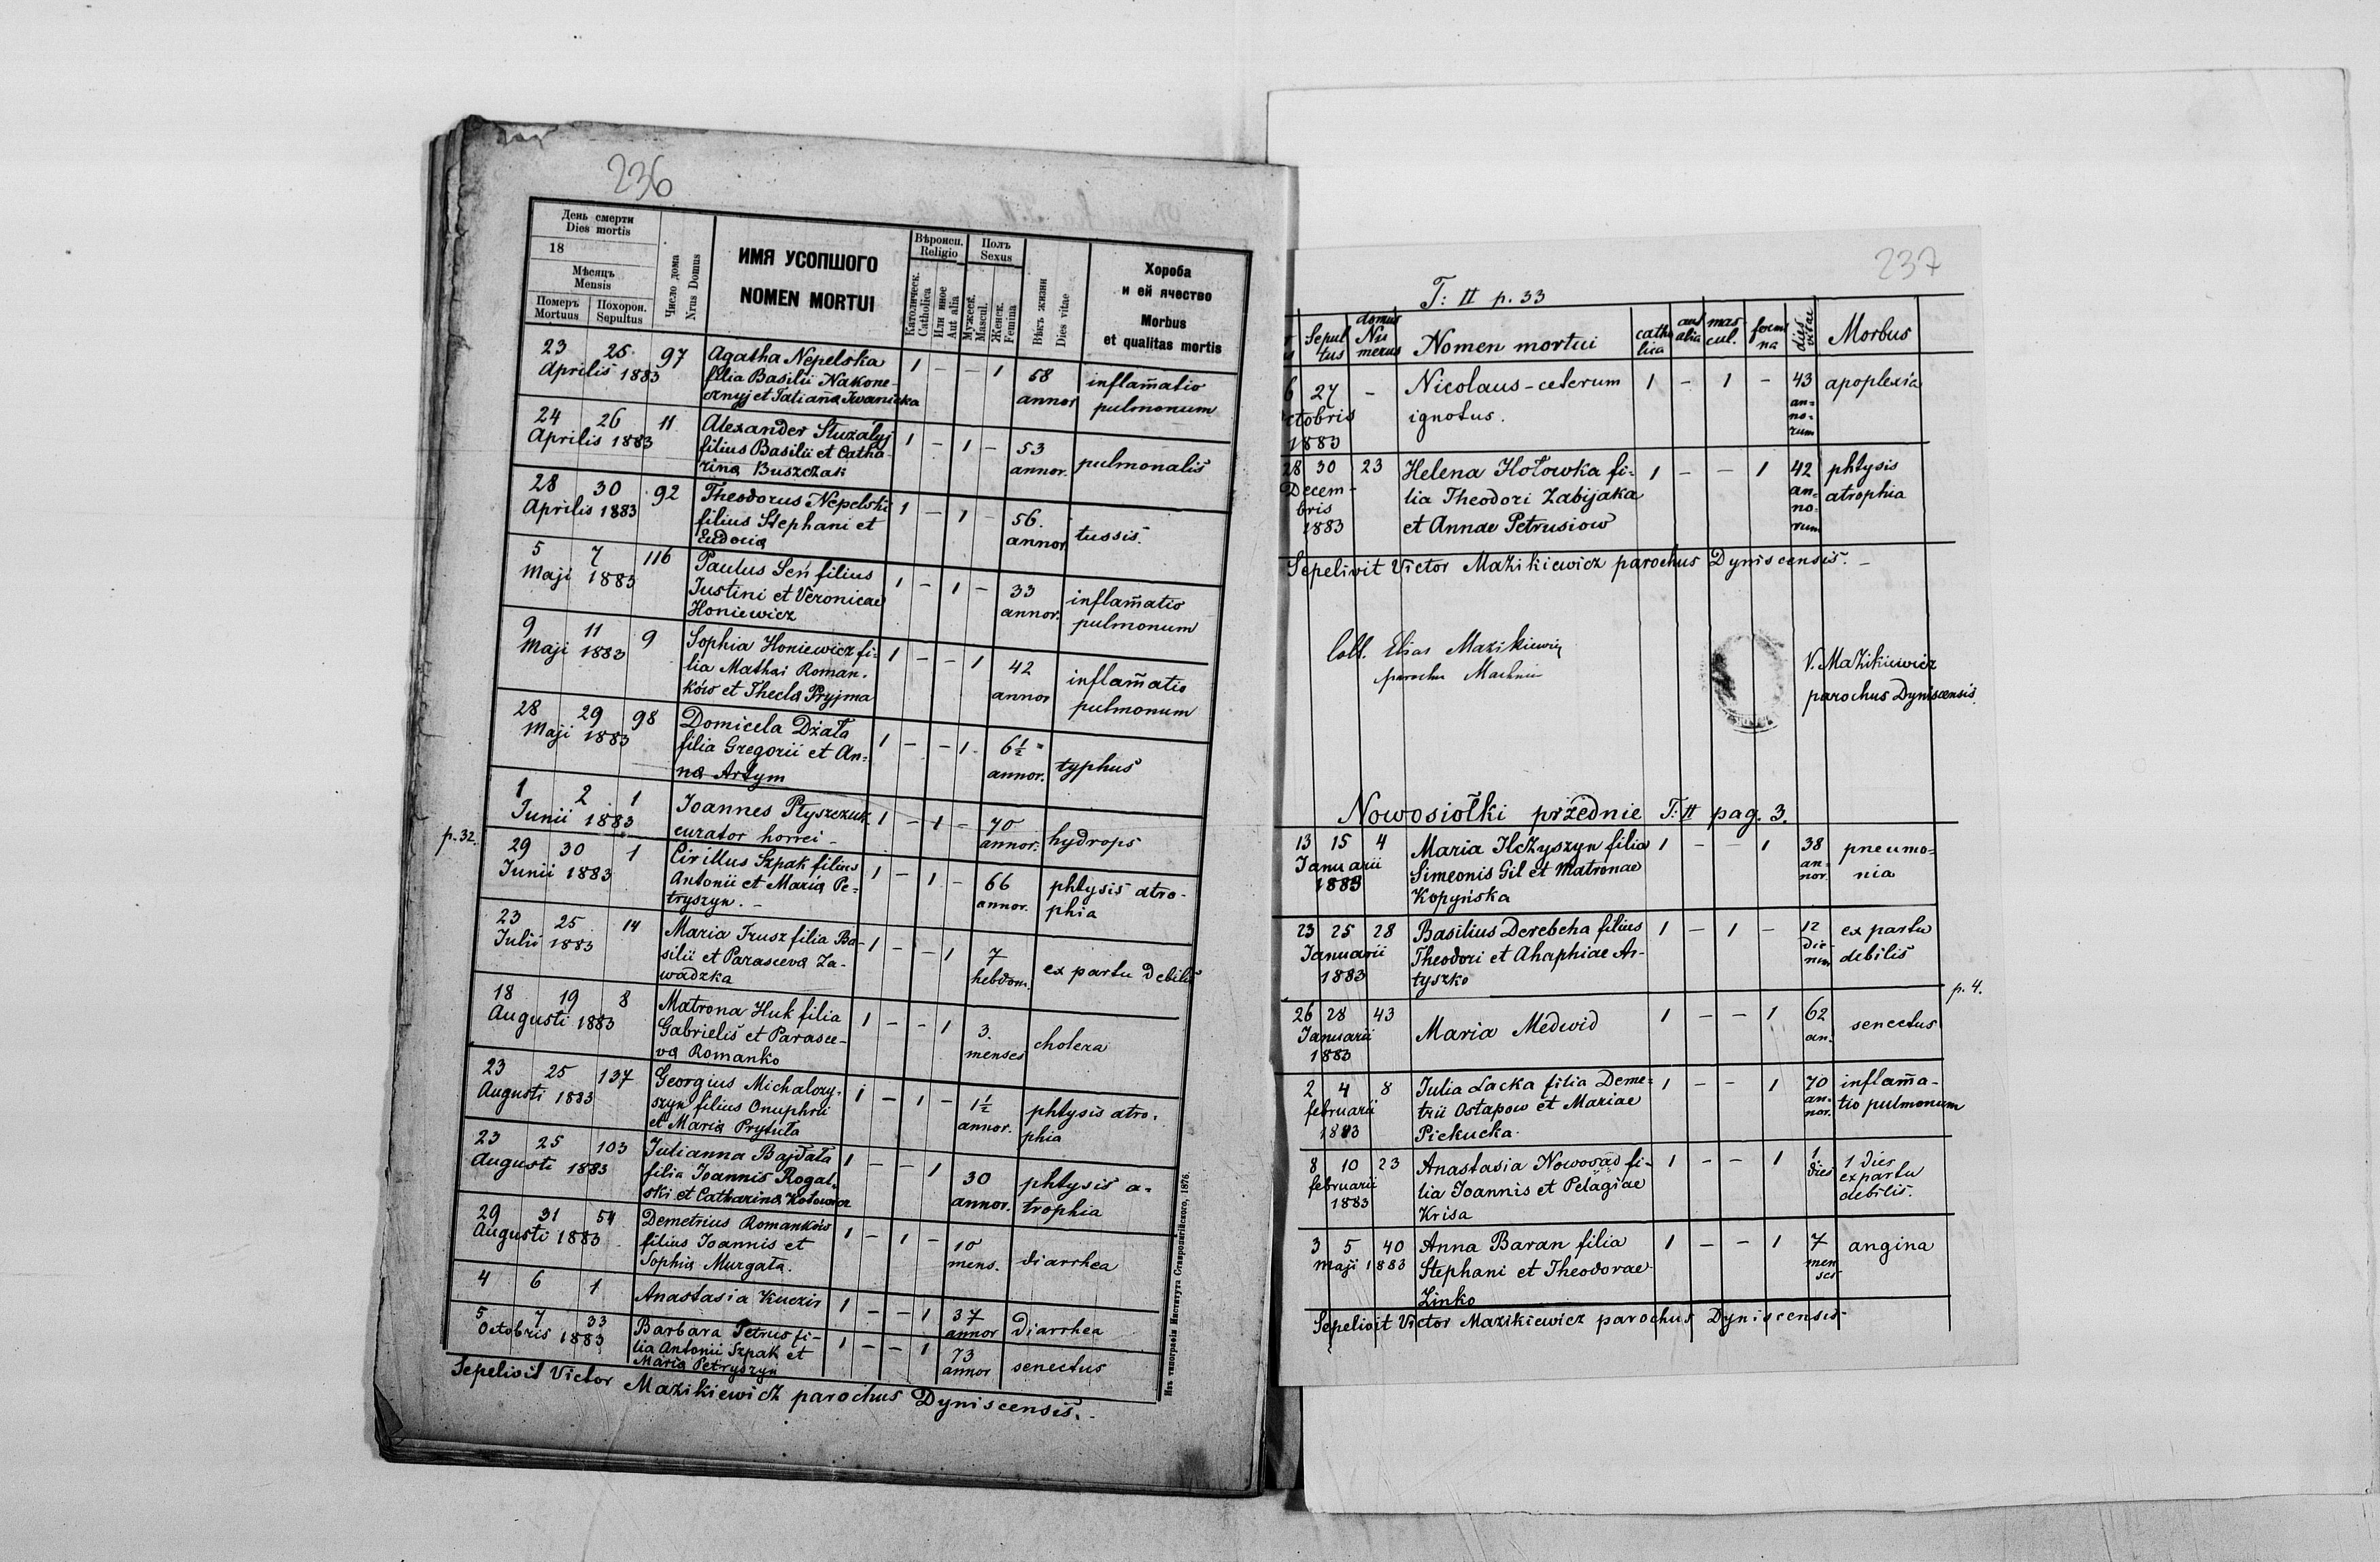 236
День смерти
Dies mortis
18
Мѣсяцъ
Mensis
Померъ
Mortuus
Похорон.
Sepultus
Число дома
Nrus Domus
ИМЯ УСОПШОГО
NOMEN MORTUI
Вѣроисп.
Religio
Католическ.
Catholica
Или иное
Aut alia
Полъ
Sexus
Мужеск.
Mascul.
Женск.
Femina
Вѣкъ жизни
Dies vitae
Хороба
и ей ячество
Morbus
et qualitas mortis
23 25 97 Agatha Nepelska 1 - - 1 58 inflam̄atio
Aprilis 1883 filia Basilii Nakone- annor pulmonum
cznyj et Tatianα Iwanicka
24 26 11 Alexander Stuzalyj 1 - 1 - 53 pulmonalis
Aprilis 1883 filius Basilii et Catha- annor.
rina Buszczak
28 30 92 Theodorus Nepelski 1 - 1 - 56. tussis.
Aprilis 1883 filius Stephani et annor
Eudocia
5 7 116 Paulus Seń filius 1 - 1 - 33 inflam̄atio
Maji 1883 Justini et Veronicae annor. pulmonum
Honiewicz
9 11 9 Sophia Honiewicz fi- 1 - - 1 42 inflam̄atio
Maji 1883 lia Mathei Roman- annor pulmonum
ków et Thecla Pryjma
28 29 98 Domicela Dżała 1 - - 1 6½ typhus
Maji 1883 filia Gregorii et An- annor.
na Artym
1 2 1 Joannes Ptyszczuk 1 - 1 - 70 hydrops
Junii 1883 curator horrei - annor.
p. 32.
29 30 1 Cirillus Szpak filius 1 - 1 - 66 phtysis atro-
Junii 1883 Antonii et Maria Pe- annor. phia
tryszyn. -
23 25 14 Maria Trusz filia Ba- 1 - - 1 7 ex partu debilis
Julii 1883 silii et Parasceva Za- hebdom.
wadzka
18 19 8 Matrona Huk filia 1 - - 1 3. cholera
Augusti 1883 Gabrielis et Parasce- menses
va Romanko
23 25 137 Georgius Michalczy- 1 - 1 - 1½ phtysis atro-
Augusti 1883 szyn filius Onuphrii annor. phia
et Maria Prytuła
23 25 103 Julianna Bajdała 1 - - 1 30 phtysis a-
Augusti 1883 filia Joannis Rogal- annor. trophia
ski et Catharina Kotowra
29 31 54 Demetrius Romanków 1 - 1 - 10 diarrhea
Augusti 1883 filius Joannis et mens.
Sophia Murgała.
4 6 1 Anastasia Kuczir 1 - - 1 37 diarrhea
annor
5 7 33 Barbara Petrus fi- 1 - - 1 73 senectus
Octobris 1883 lia Antonii Szpak et annor
Maria Petryszyn
Sepelivit Victor Mazikiewicz parochus Dyniscensis. -
Изъ типографіи Института Ставропигійского, 1876.
237
T: II p. 33
Sepul
tus
domus
Nu
merus
Nomen mortui
catho
lica
aut
alia
mas
cul.
foemi
na
dies
vitae
Morbus
6 27 - Nicolaus - ceterum 1 - 1 - 43 apoplexia
ctobris ignotus. an-
1883 no-
rum
28 30 23 Helena Hołowka fi- 1 - - 1 42 phtysis
Decem- lia Theodori Zabijaka an- atrophia
bris et Annae Petrusiow no-
1883 rum
Sepelivit Victor Mazikiewicz parochus Dyniscensis. -
Coll. Elias Mazikiewicz
parochus
V. Mazikiewicz
parochus Dyniscensis.
Nowosiołki przednie T: II pag. 3.
13 15 4 Maria Ilczyszyn filia 1 - - 1 38 pneumo-
Januarii Simeonis Gil et Matronae an- nia
1883 Kopyńska nor.
23 25 28 Basilius Derebcha filius 1 - 1 - 12 ex partu
Januarii Theodori et Ahaphiae Ar- die- debilis
1883 tyszko rum
p. 4.
26 28 43 Maria Medwid 1 - - 1 62 senectus
Januarii an.
1883
2 4 8 Julia Lacka filia Deme- 1 - - 1 70 inflam̄a-
februarii trii Ostapow et Mariae an- tio pulmonum
1883 Piekucka. nor.
8 10 23 Anastasia Nowosad fi- 1 - - 1 1 1 dies
februarii lia Joannis et Pelagiae dies ex partu
1883 Krisa debilis.
3 5 40 Anna Baran filia 1 - - 1 7 angina
Maji 1883 Stephani et Theodorae men
Zinko ses
Sepelivit Victor Mazikiewicz parochus Dyniscensis -